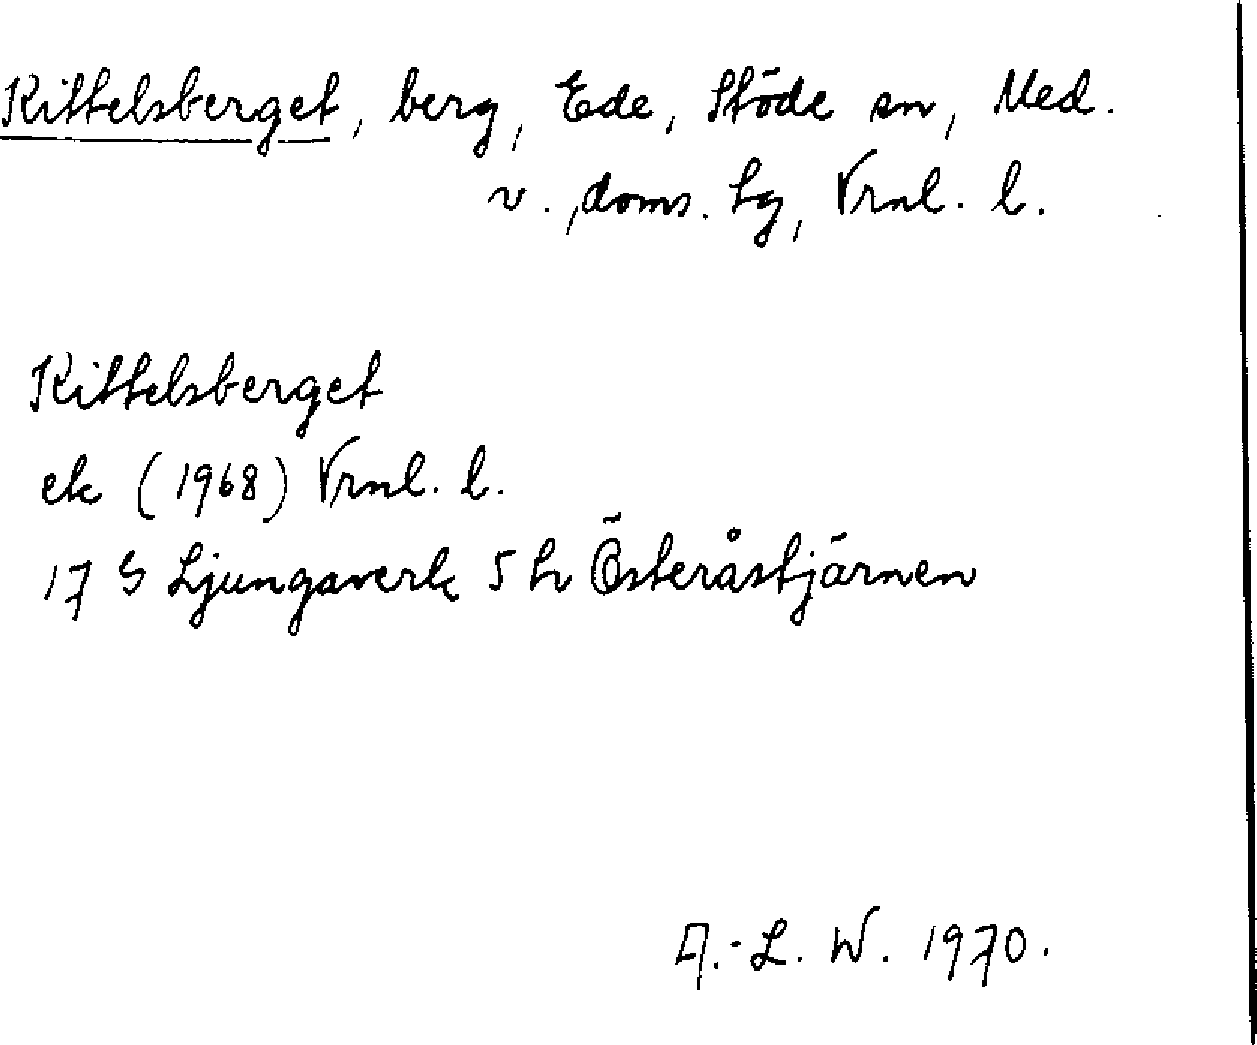 Kittelsberget, berg, Ede, Stöde sn, Med.
v., doms. lg, Vrnl. l.
Kittelsberget
ek (1968) Vrnl. l.
17 G Ljungaverk 5 h Österåstjärnen
A.-L. W. 1970.